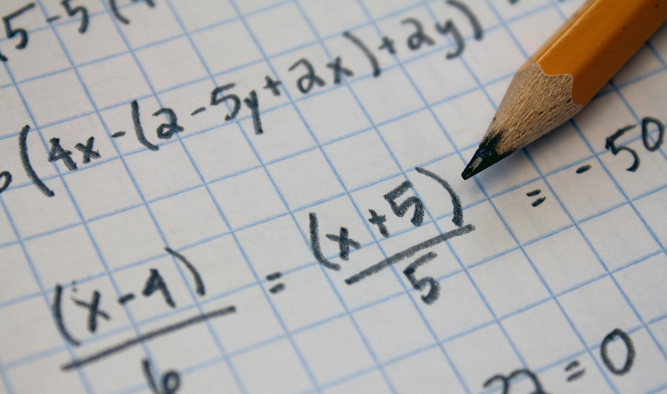 5-5(
(4x-(2-5y+2x)+2y)
= -50
(x-4)/6 = (x+5)/5
22=0